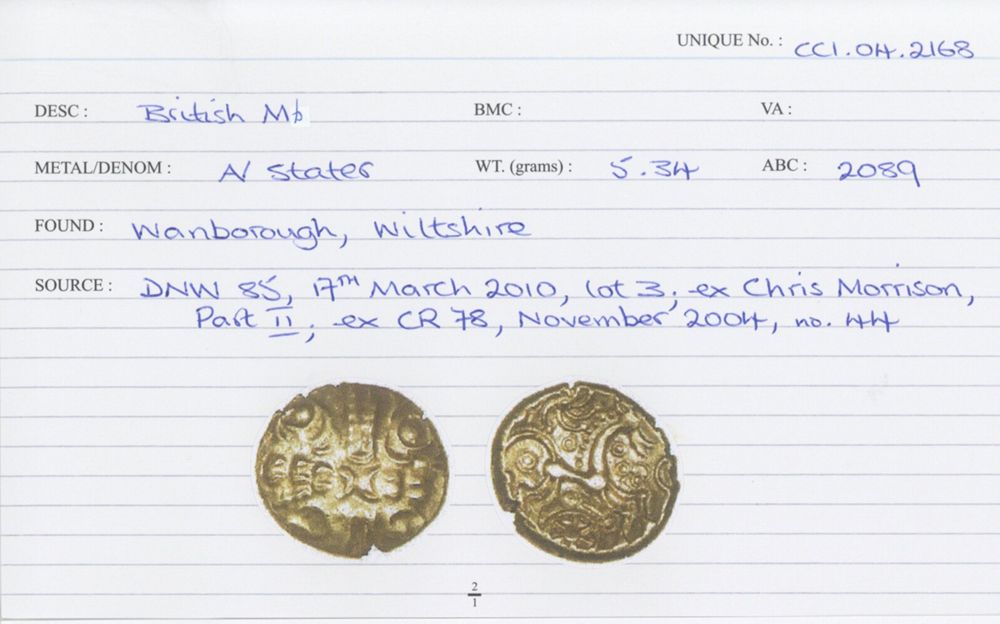 UNIQUE No. : CCI.04.2168
DESC : British Mb BMC : VA :
METAL/DENOM : A/ Stater WT. (grams) : 5.34 ABC : 2089
FOUND : Wanborough, Wiltshire
SOURCE : DNW 85, 17TH March 2010, lot 3; ex Chris Morrison,
Part II; ex CR 78, November 2004, no. 44
2
1